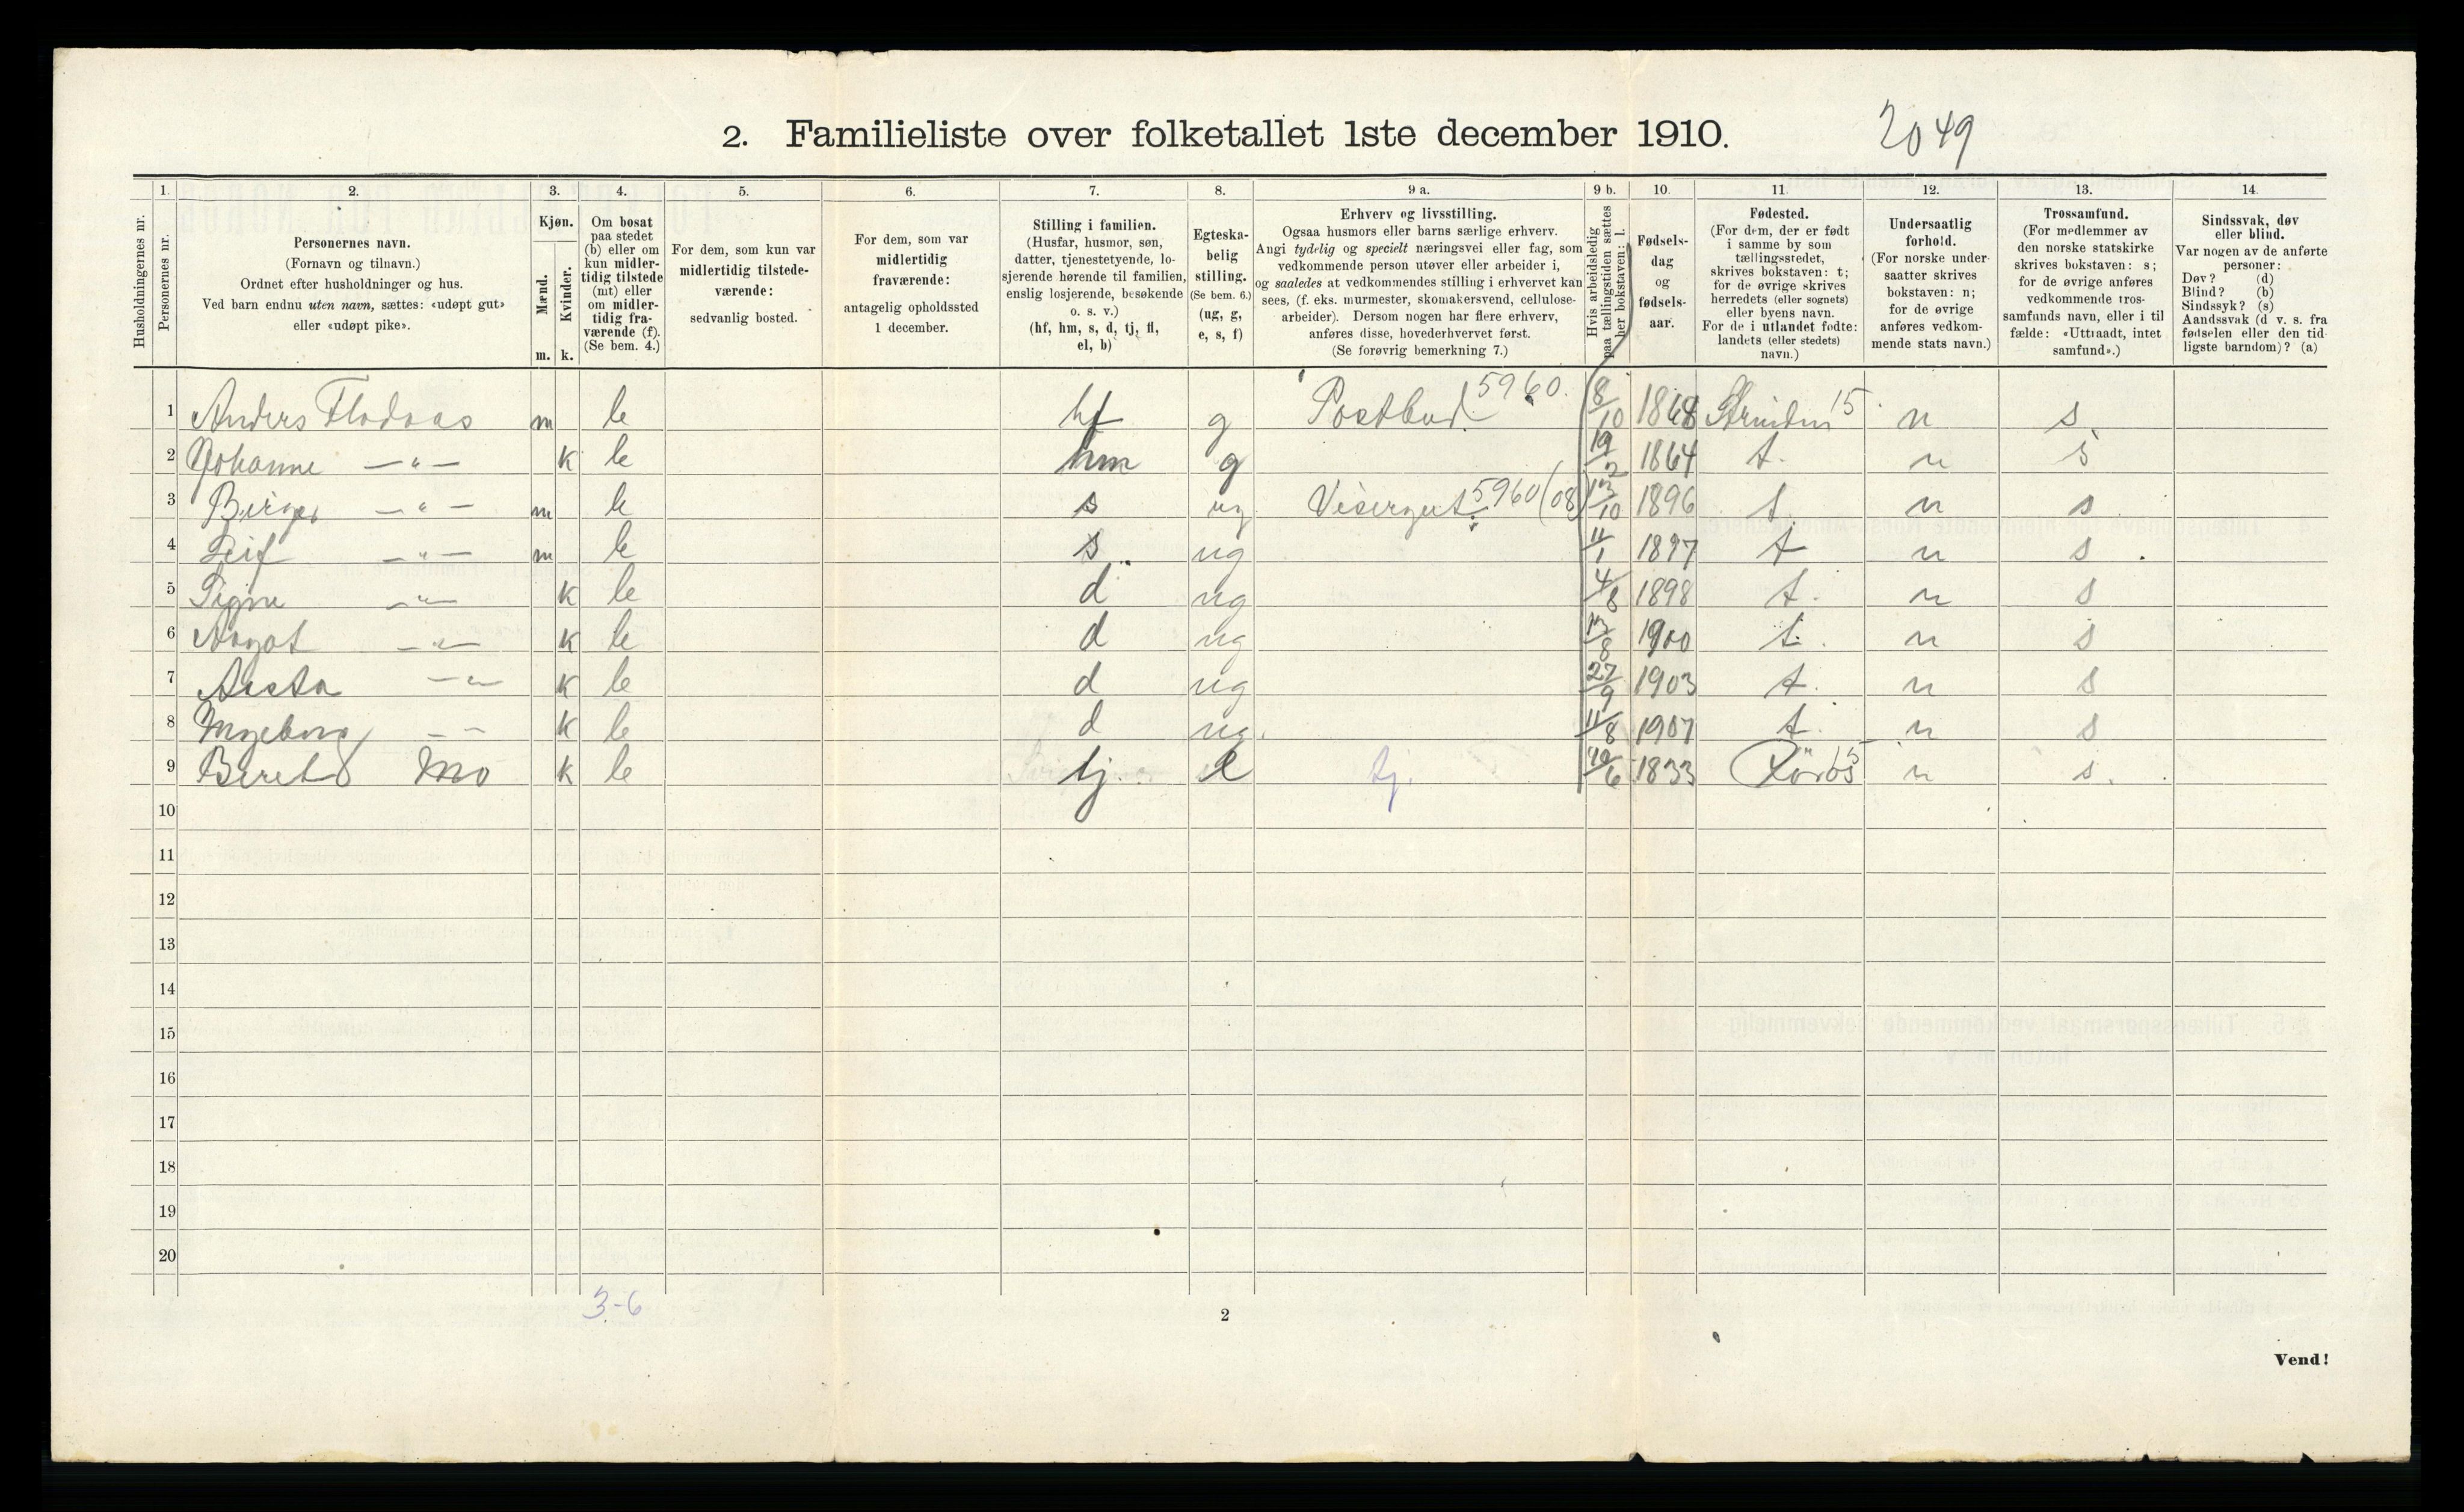 2. Familieliste over folketallet 1ste december 1910.
2049
1. 2. 3. 4. 5. 6. 7. 8. 9 a. 9 b. 10. 11. 12. 13. 14.
Husholdningernes nr.
Personernes nr.
Personernes navn.
(Fornavn og tilnavn.)
Ordnet efter husholdninger og hus.
Ved barn endnu uten navn, sættes: «udøpt gut»
eller «udøpt pike».
Kjøn.
Mænd.
Kvinder.
m. k.
Om bosat
paa stedet
(b) eller om
kun midler-
tidig tilstede
(mt) eller
om midler-
tidig fra-
værende (f).
(Se bem. 4.)
For dem, som kun var
midlertidig tilstede-
værende:
sedvanlig bosted.
For dem, som var
midlertidig
fraværende:
antagelig opholdssted
1 december.
Stilling i familien.
(Husfar, husmor, søn,
datter, tjenestetyende, lo-
sjerende hørende til familien,
enslig losjerende, besøkende
o. s. v.)
(hf, hm, s, d, tj, fl,
el, b)
Egteska-
belig
stilling.
(Se bem. 6.)
(ug, g,
e, s, f)
Erhverv og livsstilling.
Ogsaa husmors eller barns særlige erhverv.
Angi tydelig og specielt næringsvei eller fag, som
vedkommende person utøver eller arbeider i,
og saaledes at vedkommendes stilling i erhvervet kan
sees, (f. eks. murmester, skomakersvend, cellulose-
arbeider). Dersom nogen har flere erhverv,
anføres disse, hovederhvervet først.
(Se forøvrig bemerkning 7.)
Hvis arbeidsledig
paa tællingstiden sættes
her bokstaven: l.
Fødsels-
dag
og
fødsels-
aar.
Fødested.
(For dem, der er født
i samme by som
tællingsstedet,
skrives bokstaven: t;
for de øvrige skrives
herredets (eller sognets)
eller byens navn.
For de i utlandet fødte:
landets (eller stedets)
navn.)
Undersaatlig
forhold.
(For norske under-
saatter skrives
bokstaven: n;
for de øvrige
anføres vedkom-
mende stats navn.)
Trossamfund.
(For medlemmer av
den norske statskirke
skrives bokstaven: s;
for de øvrige anføres
vedkommende tros-
samfunds navn, eller i til
fælde: «Uttraadt, intet
samfund».)
Sindssvak, døv
eller blind.
Var nogen av de anførte
personer:
Døv? (d)
Blind? (b)
Sindssyk? (s)
Aandssvak (d v. s. fra
fødselen eller den tid-
ligste barndom)? (a)
1 Anders Flodaas m b hf g Postbud. 5960. 8/10 1868 Strinden 15 n s.
2 Johanne —"— k b hm g 19/2 1864 t. n s
3 Birger —"— m b s ug Visergut 5960 (08) 13/10 1896 t. n s
4 Leif —"— m b s ug 11/1 1897 t n s
5 Signe —"— k b d ug 4/8 1898 t. n s
6 Aagot —"— k b d ug 13/8 1900 t. n s
7 Aasta —"— k b d ug 27/9 1903 t. n s
8 Ingeborg —"— k b d ug. 11/8 1907 t. n s
9 Beret Mo k b tj e tj. 10/6 1833 Röros 15 n s.
10
11
12
13
14
15
16
17
18
19
20
3-6
2
Vend!